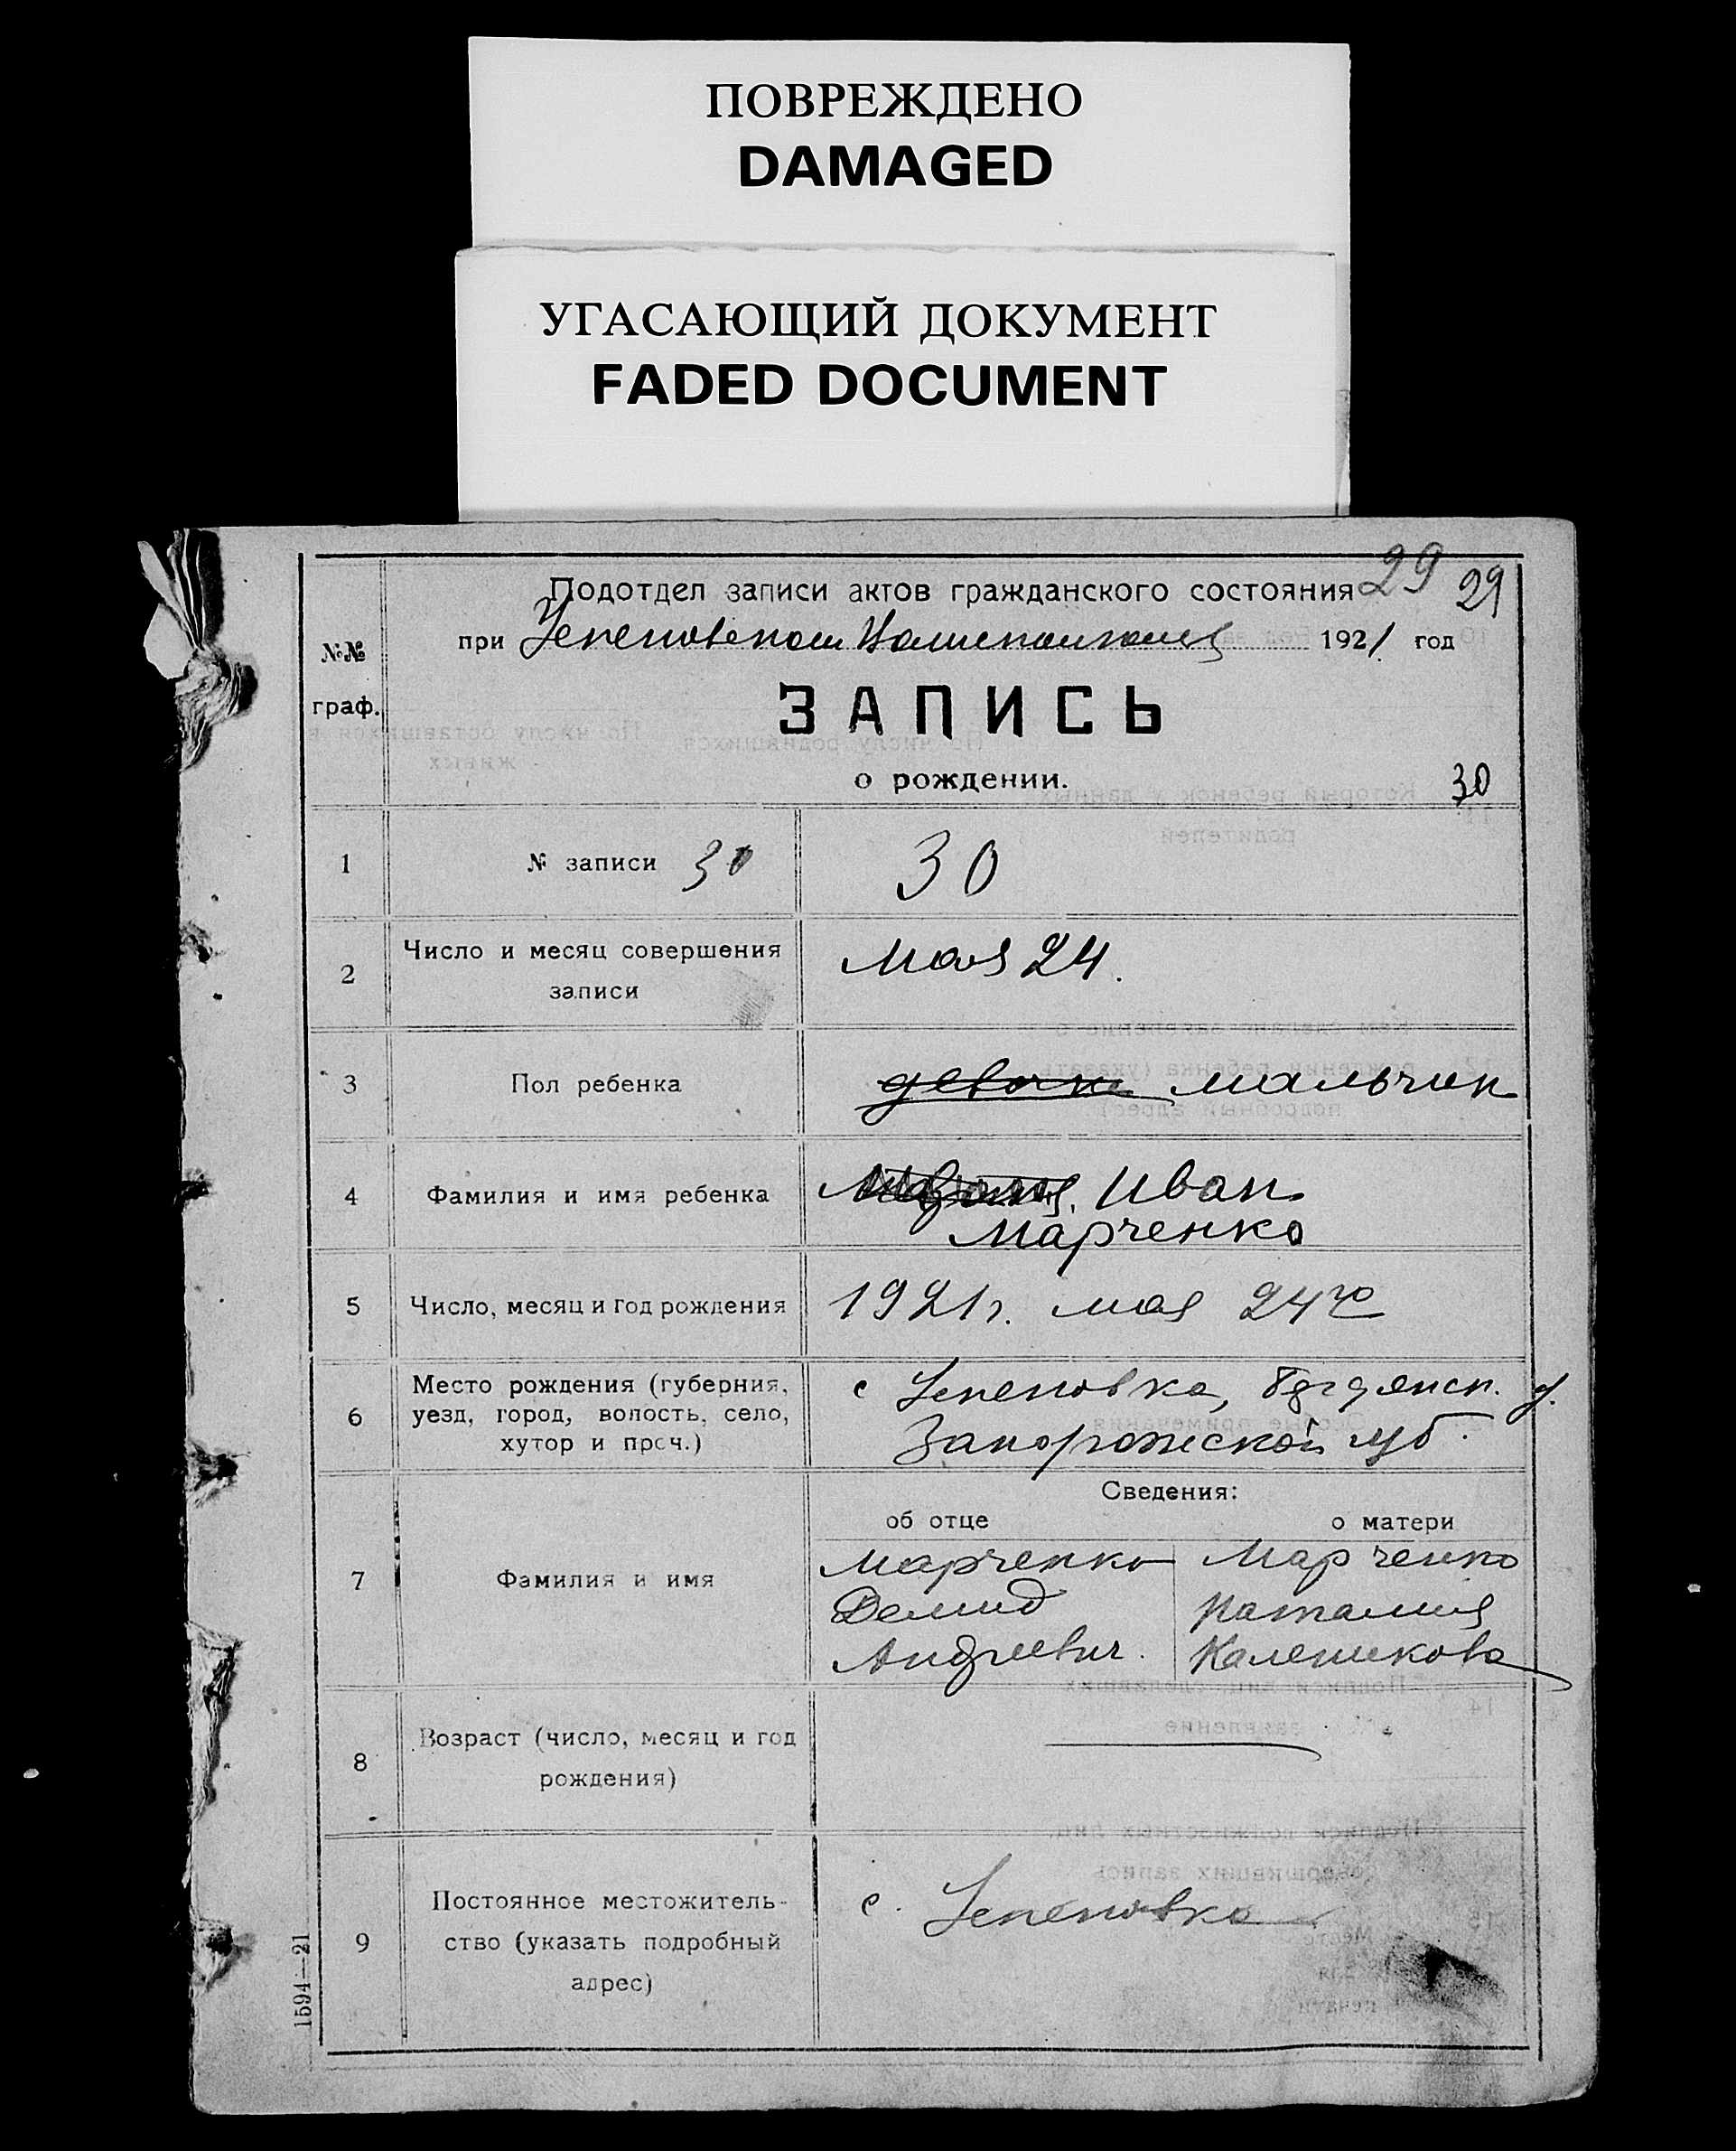 ПОВРЕЖДЕНО
DAMAGED
УГАСАЮЩИЙ ДОКУМЕНТ
FADED DOCUMENT
29 29
Подотдел записи актов гражданского состояния
при 1921 год
№№
граф.
ЗАПИСЬ
о рождении.
30
1 № записи 30 30
2 Число и месяц совершения
записи
мая 24.
3 Пол ребенка мальчик
4 Фамилия и имя ребенка Иван
Марченко
5 Число, месяц и год рождения 1921 г. мая 24го
6 Место рождения (губерния,
уезд, город, волость, село,
хутор и проч.)
с у.
Запорожской губ.
Сведения:
об отце о матери
7 Фамилия и имя
Марченко Марченко
Демид Наталия
Андреевич.
8 Возраст (число, месяц и год
рождения)
9 Постоянное местожитель-
ство (указать подробный
адрес)
с.
1594—21